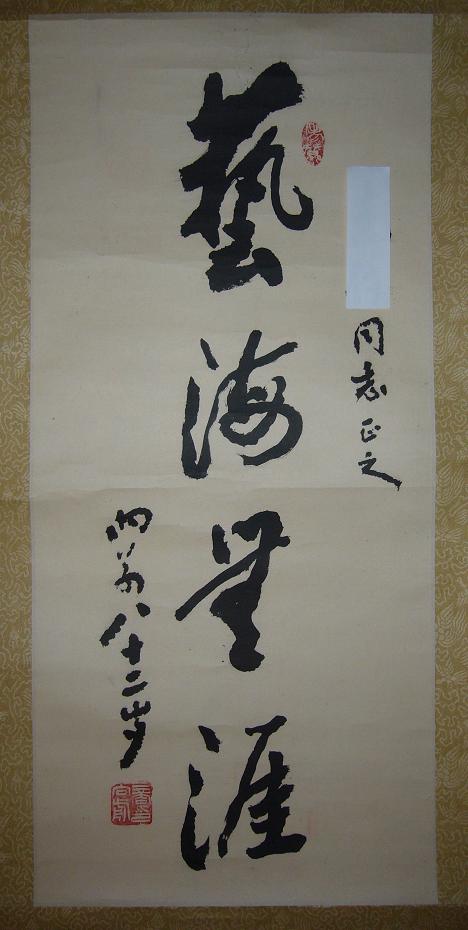 同志正之
藝海無涯
八十二岁